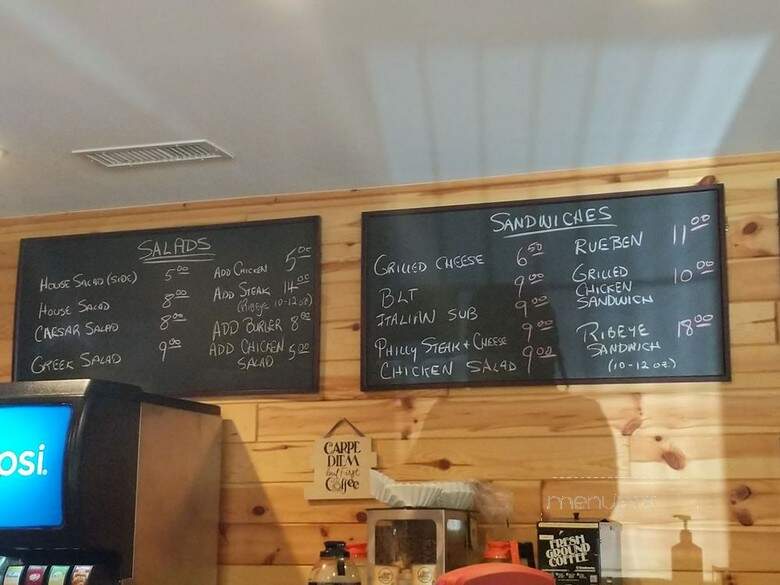 SALADS
HOUSE SALAD (SIDE) 5.00
HOUSE SALAD 8.00
CAESAR SALAD 8.00
GREEK SALAD 9.00
ADD CHICKEN 5.00
ADD STEAK 14.00
(Ribeye 10-12 oz)
ADD BURGER 8.00
ADD CHICKEN
SALAD 5.00
SANDWICHES
GRILLED CHEESE 6.50
BLT 9.00
ITALIAN SUB 9.00
PHILLY STEAK + CHEESE 9.00
CHICKEN SALAD 9.00
RUEBEN 11.00
GRILLED
CHICKEN
SANDWICH 10.00
RIBEYE
SANDWICH 18.00
(10-12 oz.)
osi.
CARPE
DIEM
but first
Coffee
menu
FRESH
GROUND
COFFEE